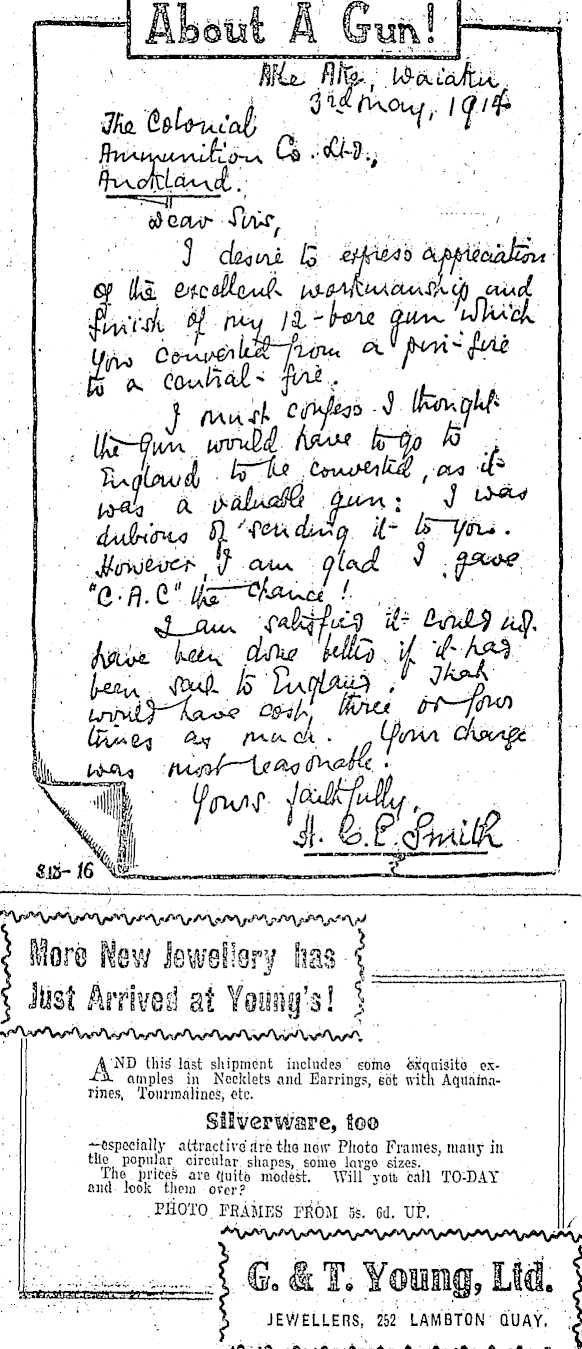 About A Gun!
Ake Ake, Waiaku
3rd May, 1914
The Colonial
Ammunition Co. Ltd.,
Auckland.
Dear Sirs,
I desire to express appreciation
of the excellent workmanship and
finish of my 12-bore gun which
you converted from a pin-fire
to a central-fire.
I must confess I thought
the gun would have to go to
England to be converted, as it
was a valuable gun: I was
dubious of sending it to you.
However, I am glad I gave
"C.A.C" the chance!
I am satisfied it could not
have been done better if it had
been sent to England. That
would have cost three or four
times as much. Your charge
was most reasonable.
Yours faithfully,
H. C. E. Smith
More New Jewellery has
Just Arrived at Young's!
AND this last shipment includes some exquisite ex-
amples in Necklets and Earrings, set with Aquama-
rines, Tourmalines, etc.
Silverware, too
—especially attractive are the new Photo Frames, many in
the popular circular shapes, some large sizes.
The prices are quite modest. Will you call TO-DAY
and look them over?
PHOTO FRAMES FROM 5s. 6d. UP.
G. & T. Young, Ltd.
JEWELLERS, 252 LAMBTON QUAY,